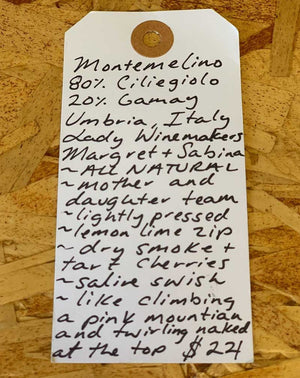 Montemelino
80% Ciliegiolo
20% Gamay
Umbria, Italy
Lady Winemakers
Margret + Sabina
~ ALL NATURAL
~ mother and
daughter team
~ lightly pressed
~ lemon lime zip
~ dry smoke +
tart cherries
~ saline swish
~ like climbing
a pink mountian
and twirling naked
at the top $24